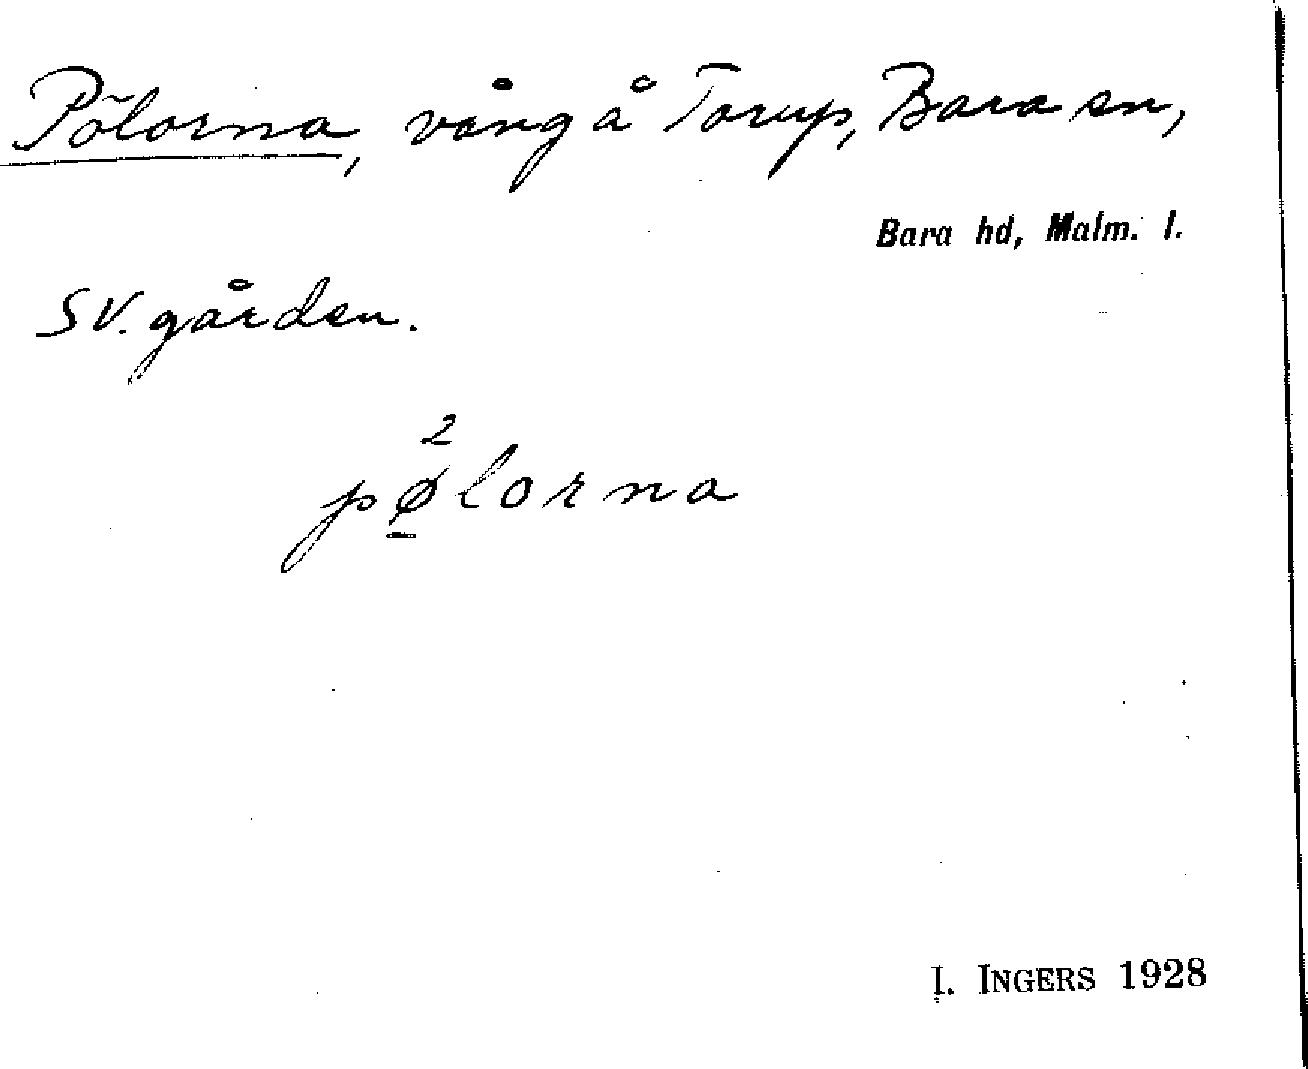 Pölorna, vång å Torup, Bara sn,
Bara hd, Malm. l.
SV. gården.
2
pølorna
I. INGERS 1928